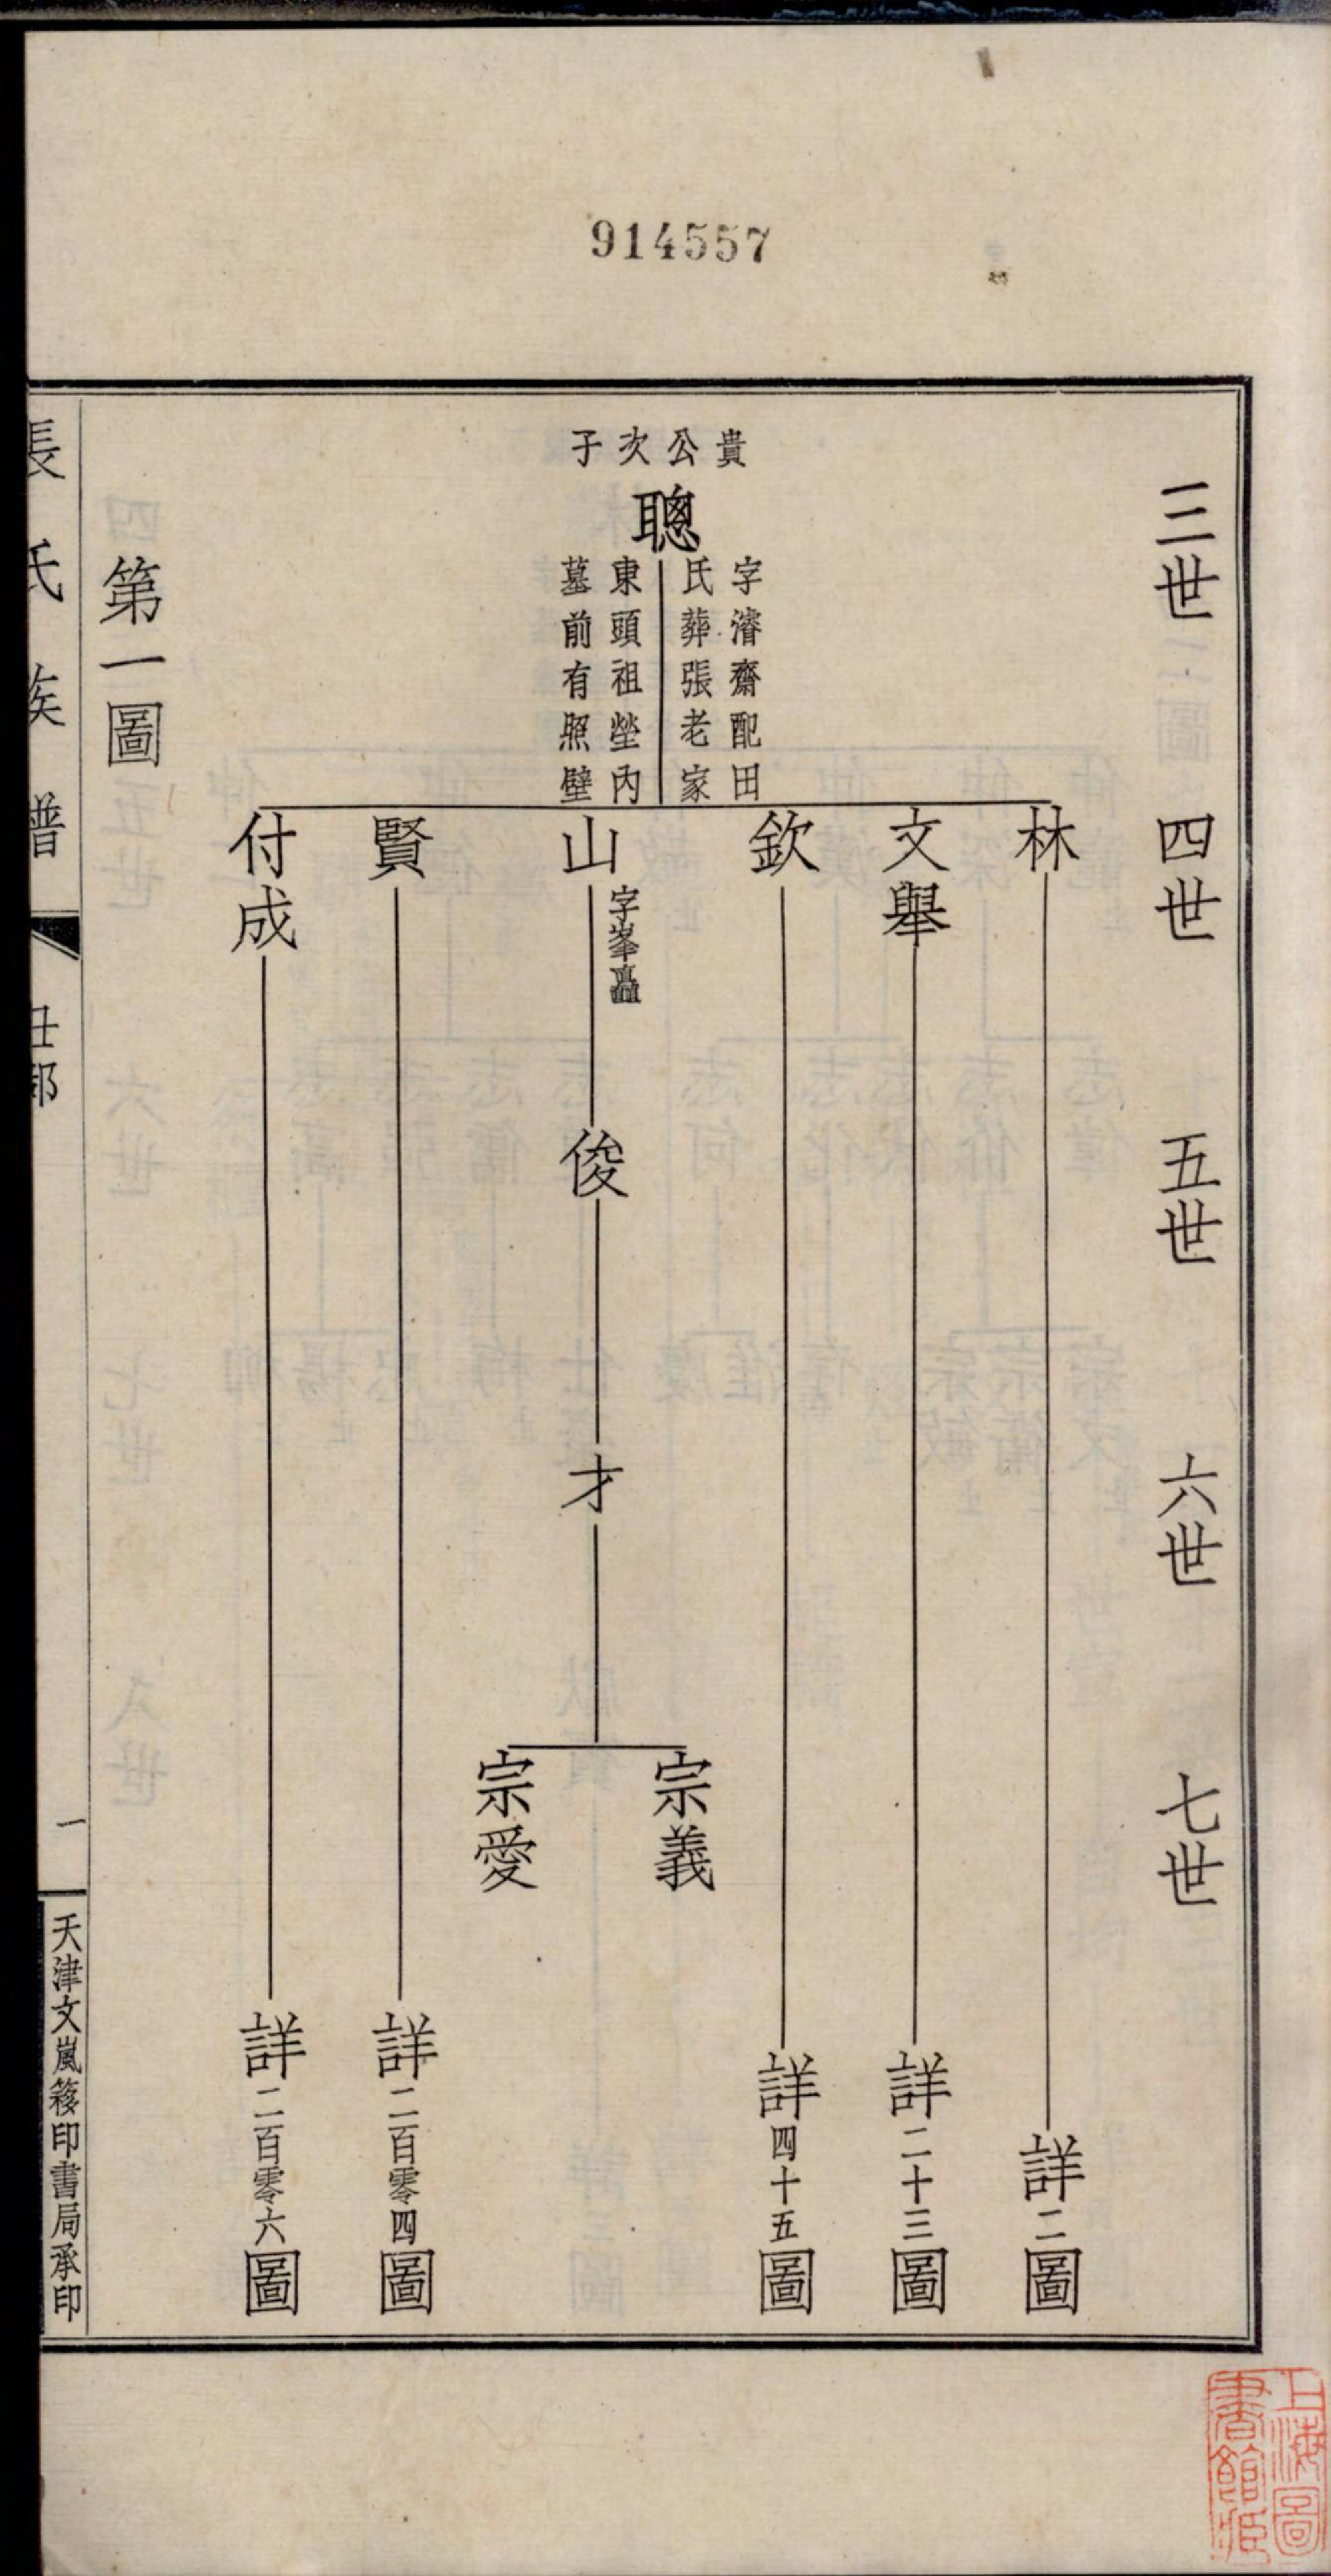 914557
三世
四世
五世
六世
七世
貴公次子
聰
字濬齋配田
氏葬張老家
東頭祖塋内
墓前有照壁
林
詳二圖
文舉
詳二十三圖
欽
詳四十五圖
山
字峯矗
俊
才
宗義
宗愛
賢
詳二百零四圖
付成
詳二百零六圖
第一圖
張氏族譜
一
天津文嵐簃印書局承印
上海圖
書館藏